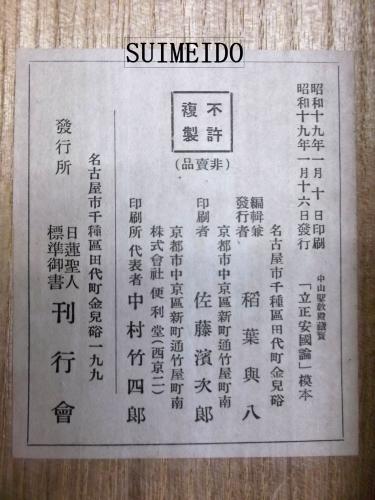 SUIMEIDO
昭和十九年一月十日印刷
昭和十九年一月十六日發行
中山聖敎殿藏寶
「立正安國論」模本
不許
複製
(非賣品)
名古屋市千種區田代町金兒硲
編輯兼
發行者
稻葉與八
京都市中京區新町通竹屋町南
印刷者
佐藤濱次郎
京都市中京區新町通竹屋町南
株式會社 便利堂(西京二)
印刷所代表者 中村竹四郎
名古屋市千種區田代町金兒硲一九九
發行所
日蓮聖人
標準御書
刊行會